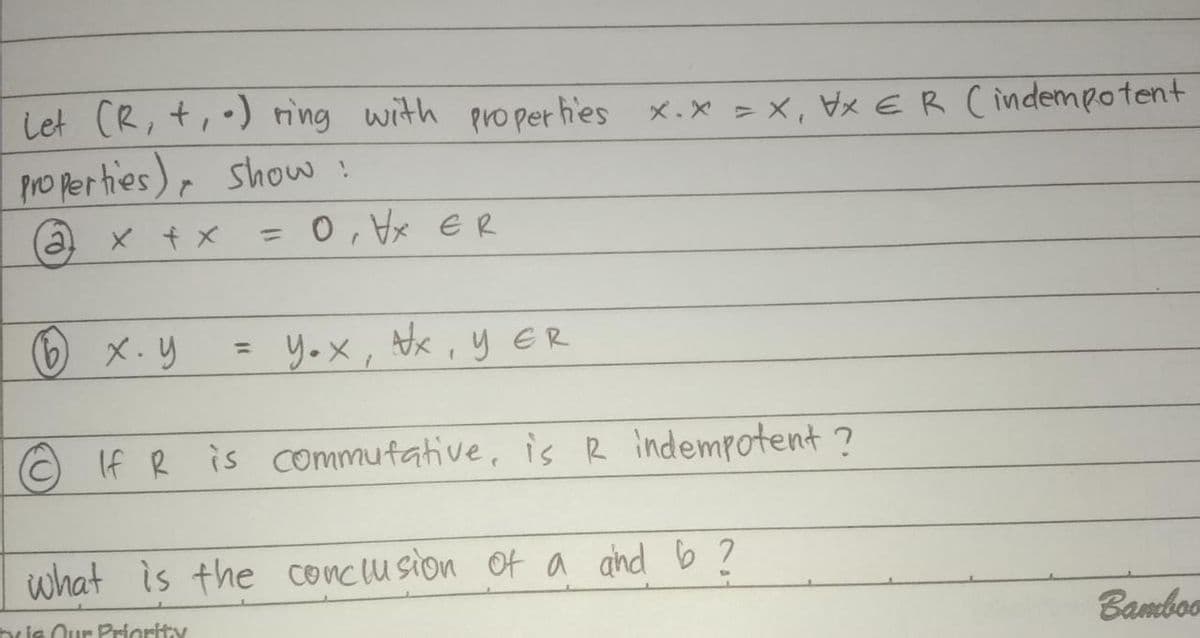 Let (R, +, •) ring with properties x.x = x, ∀x ∈ R (indempotent
properties), show :
ⓐ x + x = 0, ∀x ∈ R
ⓑ x.y = y•x, ∀x, y ∈ R
ⓒ If R is commutative, is R indempotent ?
what is the conclusion of a and b ?
Bamboo
is Our Priority